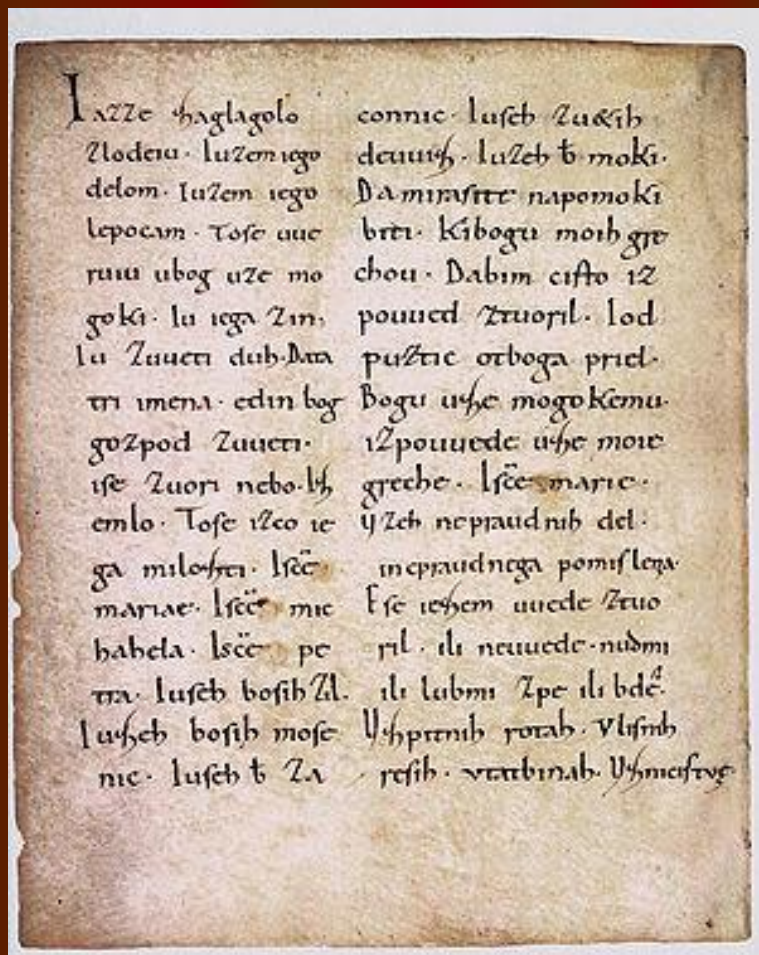 Iazze zaglagolo
Zlodeiu. Iuzem iego
delom. Iuzem iego
lepocam. Tose uue
ruiu ubog uze mo
goki. Iu iega Zin,
Iu Zuueti duh. Data
tri imena. edin bog
gozpod Zuueti.
ise Zuori nebo. Iz
emlo. Tose izco ie
ga milozti. Isc̄e
mariae. Isc̄e mic
hahela. Isc̄e pe
tra. Iuseh bosih Zil.
Iuzeh bosih mose
nic. Iuseh ƀ Za
connic. Iuseh Zu&ih
deuuiz. Iuzeh ƀ moki.
Da mirasite napomoki
biti. Kibogu moih gre
chou. Dabim cisto iz
pouued ztuoril. Iod
puztic otboga priel.
Bogu uze mogokemu.
izpouuede uze moie
greche. Isc̄e marie.
Uzeh nepraudnih del.
inepraudnega pomislena.
Ese iezem uuede ztuo
ril. ili neuuede. nudmi
ili lubmi Zpe ili bde.
Uzpitnih rotah. Vlisnih
resih. vtatbinah. Uzmicistue.